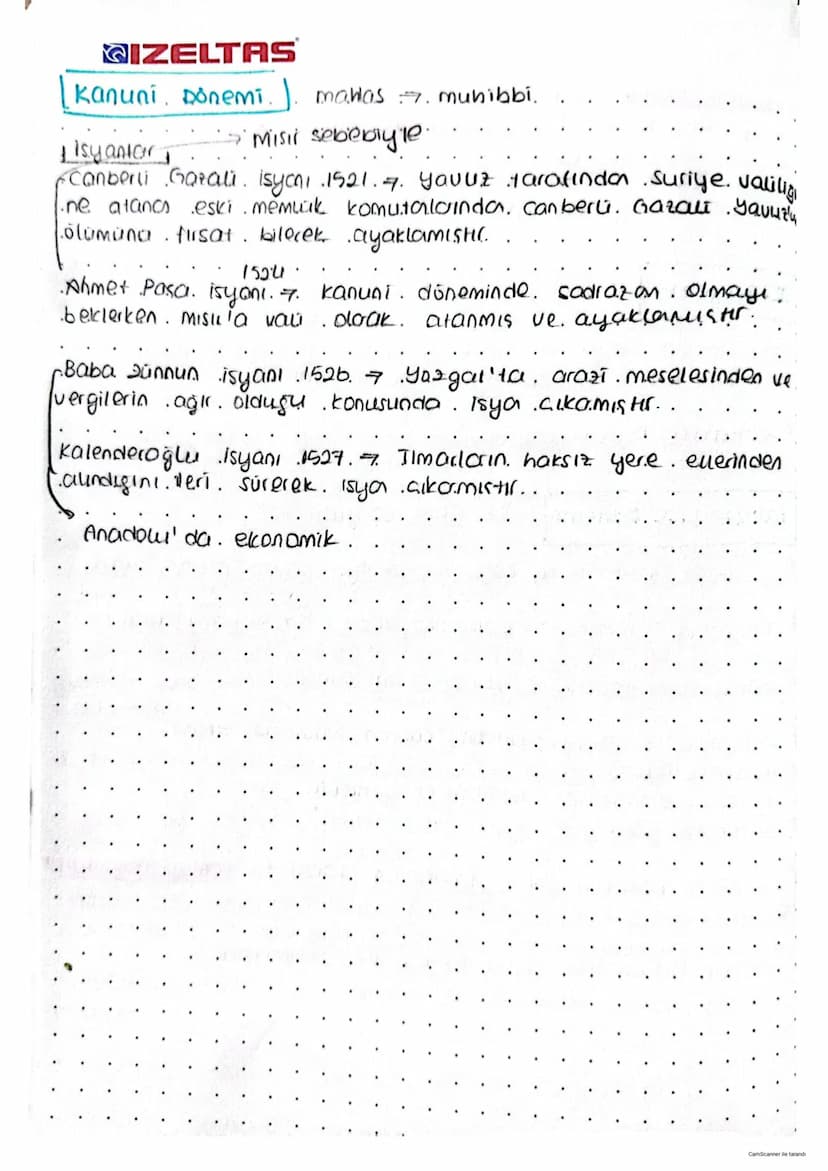 IZELTAS
Kanuni Dönemi mahlas → muhibbi.
İsyanlar → Mısır sebebiyle
Canberli Gazali isyanı 1521 → Yavuz tarafından Suriye valiliği
ne atanan eski memlük komutalarından canberli Gazali Yavuz'un
ölümünü fırsat bilerek ayaklamıştır.
1524
Ahmet Paşa isyanı → Kanuni döneminde sadrazam olmayı
beklerken Mısır'a vali olarak atanmış ve ayaklanmıştır.
Baba Zünnun isyanı 1526 → Yozgat'ta arazi meselesinden ve
vergilerin ağır olduğu konusunda isyan çıkamıştır.
Kalenderoğlu isyanı 1527 → Tımarların haksız yere ellerinden
alındığını ileri sürerek isyan çıkamıştır.
Anadolu'da ekonomik
CamScanner ile tarandı